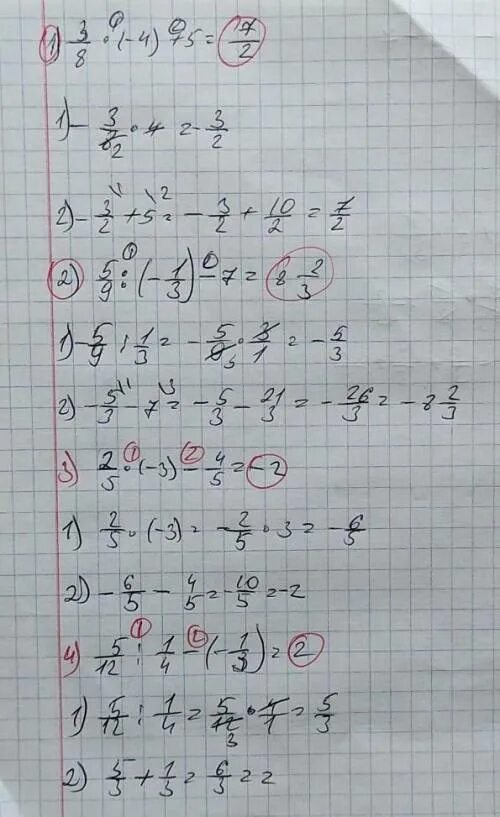 1) 3/8 · (-4) + 5 = 7/2
1) - 3/8 2 · 4 = - 3/2
2) - 3/2 + 5 = - 3/2 + 10/2 = 7/2
2) 5/9 : (- 1/3) - 7 = 8 2/3
1) - 5/9 : 1/3 = - 5/9 3 · 3/1 = - 5/3
2) - 5/3 - 7 = - 5/3 - 21/3 = - 26/3 = - 8 2/3
3) 2/5 · (-3) - 4/5 = -2
1) 2/5 · (-3) = - 2/5 · 3 = - 6/5
2) - 6/5 - 4/5 = - 10/5 = -2
4) 5/12 : 1/4 - (- 1/3) = 2
1) 5/12 : 1/4 = 5/12 3 · 4/1 = 5/3
2) 5/3 + 1/3 = 6/3 = 2